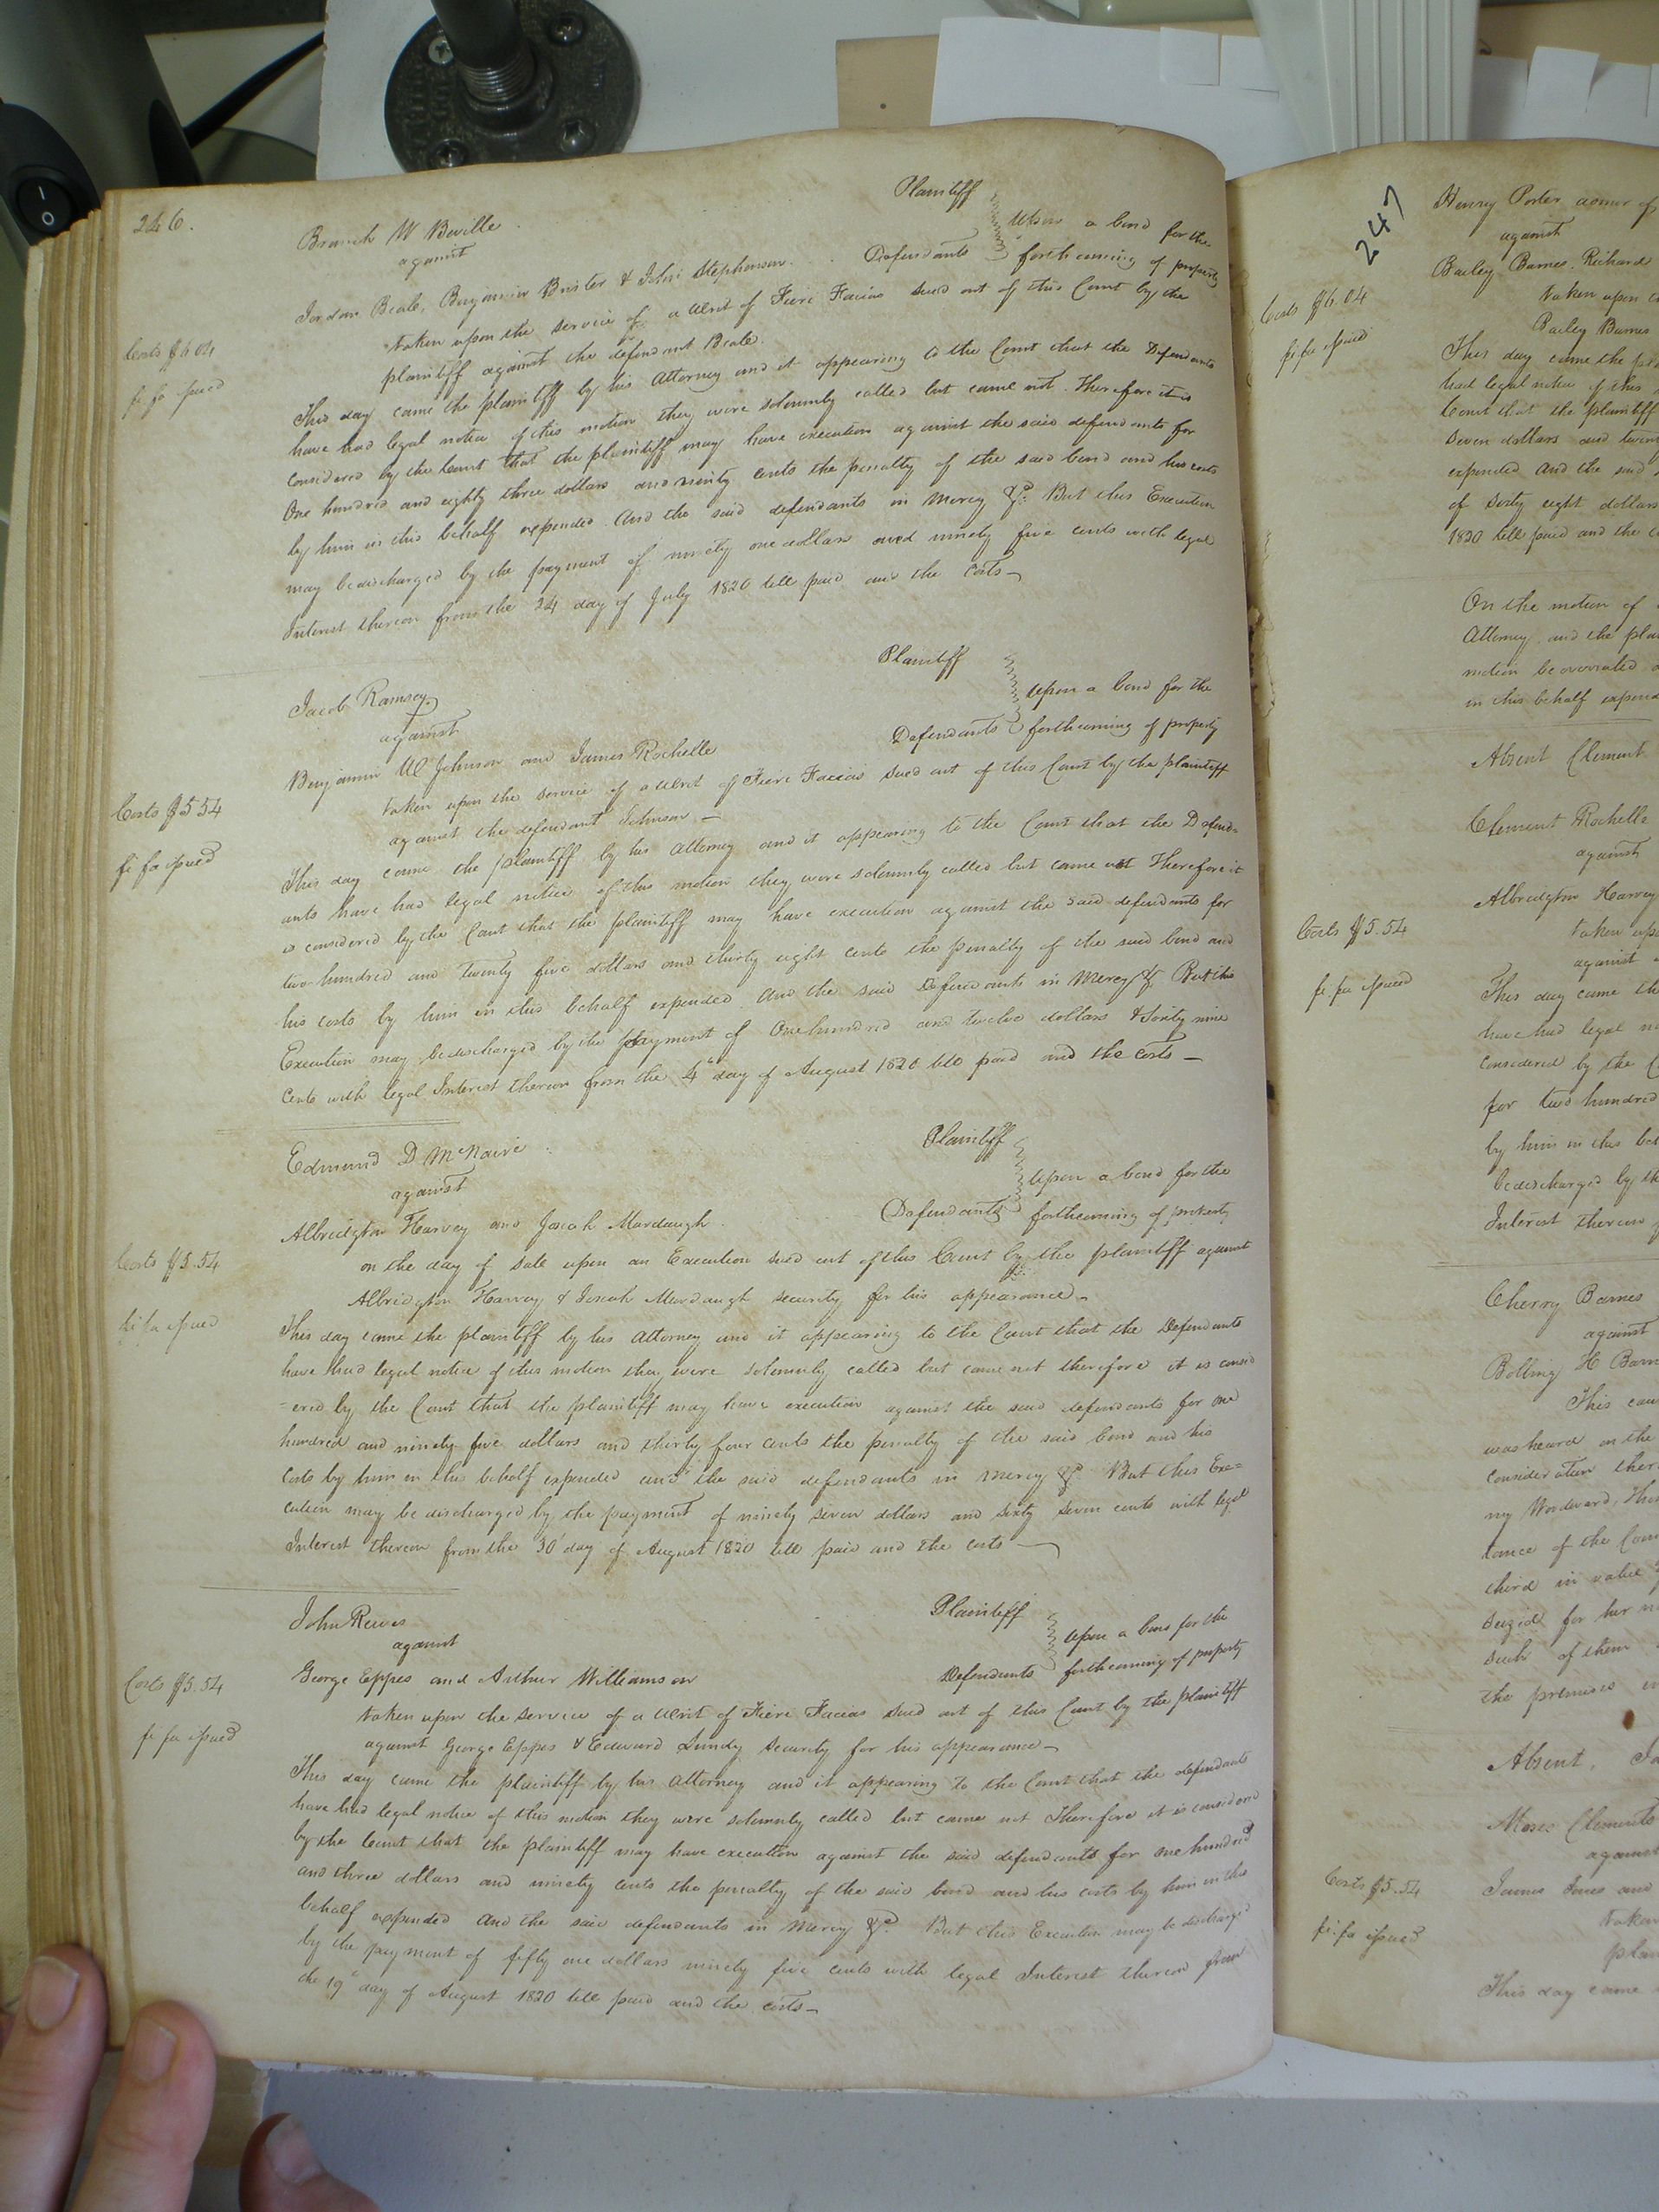 246.
Branch W Boville Plaintiff
against
Upon a bond for the
Jordan Beale, Benjamin Brister & John Stephenson. Defendants forthcoming of property
taken upon the service of a Writ of Fieri Facias sued out of this Court by the
plaintiff against the defendant Beale.
Costs $6.04
fi fa issued
This day came the plaintiff by his Attorney and it appearing to the Court that the Defendants
have had legal notice of this motion they were solemnly called but came not. Therefore it is
considered by the Court that the plaintiff may have execution against the said defendants for
One hundred and eighty three dollars and ninety cents the penalty of the said bond and his costs
by him in this behalf expended. And the said defendants in Mercy &c. But this Execution
may be discharged by the payment of ninety one dollars and ninety five cents with legal
Interest thereon from the 24 day of July 1820 till paid and the Costs
Jacob Ramsey Plaintiff
against
Upon a bond for the
Benjamin W Johnson and James Rochelle Defendants forthcoming of property
taken upon the service of a Writ of Fieri Facias sued out of this Court by the plaintiff
against the defendant Johnson
Costs $5 54
fi fa issued
This day came the plaintiff by his Attorney and it appearing to the Court that the Defend=
ants have had legal notice of this motion they were solemnly called but came not Therefore it
is considered by the Court that the plaintiff may have execution against the said defendants for
two hundred and twenty five dollars and thirty eight cents the penalty of the said bond and
his costs by him in this behalf expended. And the said Defendants in Mercy &c But this
Execution may be discharged by the payment of One hundred and twelve dollars & sixty nine
Cents with legal Interest thereon from the 4th day of August 1820 till paid and the costs
Edmund D McNaire Plaintiff
against
Upon a bond for the
Albridgton Harvey and Josiah Murdaugh. Defendants forthcoming of property
on the day of sale upon an Execution sued out of this Court by the plaintiff against
Albridgton Harvey & Josiah Murdaugh security for his appearance
Costs $5.54
fi fa issued
This day came the plaintiff by his Attorney and it appearing to the Court that the Defendants
have had legal notice of this motion they were solemnly called but came not therefore it is consid
=ered by the Court that the plaintiff may have execution against the said defendants for one
hundred and ninety five dollars and thirty four cents the penalty of the said bond and his
Costs by him in this behalf expended and the said defendants in mercy &c. But this Exe=
cution may be discharged by the payment of ninety seven dollars and sixty seven cents with legal
Interest thereon from the 30 day of August 1820 till paid and the costs
John Reives Plaintiff
against
Upon a bond for the
George Eppes and Arthur Williamson Defendants forthcoming of property
taken upon the service of a Writ of Fieri Facias sued out of this Court by the plaintiff
against George Eppes & Edward Lundy security for his appearance
Costs $5.54
fi fa issued
This day came the plaintiff by his Attorney and it appearing to the Court that the defendants
have had legal notice of this motion they were solemnly called but came not Therefore it is considered
by the Court that the plaintiff may have execution against the said defendants for one hundred
and three dollars and ninety cents the penalty of the said bond and his costs by him in this
behalf expended And the said defendants in Mercy &c. But this Execution may be discharged
by the payment of fifty one dollars ninety five cents with legal Interest thereon from
the 19th day of August 1820 till paid and the costs
247
Henry Porter
against
Bailey Barnes, Richard
taken upon
Bailey Barnes
Costs $6.04
fi fa issued
This day came the
had legal notice of this
Court that the plaintiff
Seven dollars and
expended And the said
of Sixty eight dollars
1820 till paid and the
On the motion of
Attorney and the
motion be overruled
in this behalf
Absent Clement
Clement Rochelle
against
Albridgton Harvey
taken
against
Costs $5.54
fi. fa issued
This day came
have had legal
Considered by the
for two hundred
by him in this
be discharged by
Interest thereon
Cherry Barnes
against
Bolling H
This
was heard on the
Consideration
ny Woodward,
tance of the
third in value
Seized for her
such of them
the premises
Absent,
Moses Clements
against
James Jones and
taken
Costs $5.54
fi. fa issued
This day came